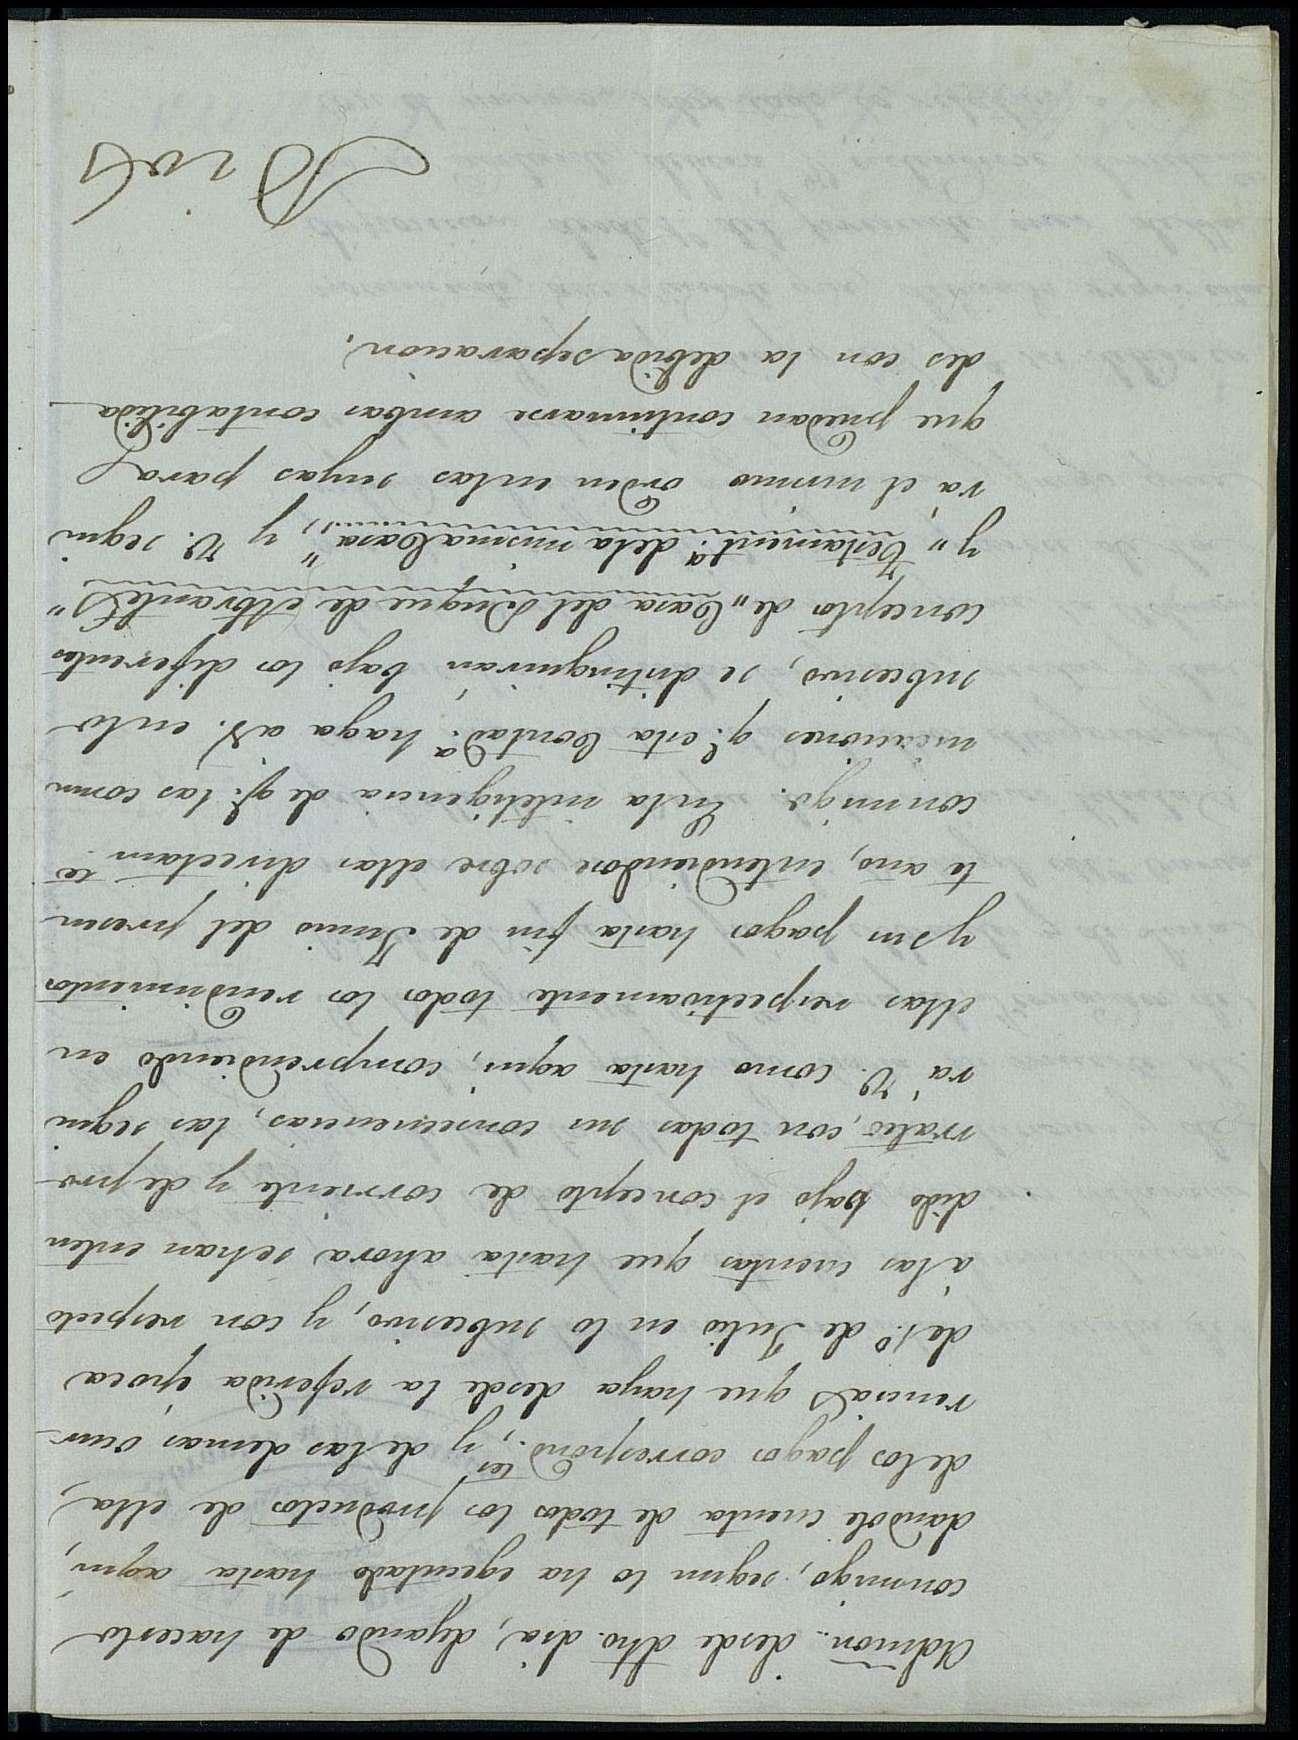 Admon. desde dho. dia, dejando de hacerlo
conmigo, segun lo ha egecutado hasta aqui,
dandole cuenta de todos los productos de ella,
de los pagos correspond.tes y, de las demas ocur-
rencias que haya desde la referida época
de 1.º de Julio en lo subcesivo, y con respecto
á las cuentas que hasta ahora se han enten
dido bajo el concepto de corriente y de pro-
rrateo, con todas sus consecuencias, las segui
rá V. como hasta aqui, comprendiendo en
ellas respectivamente todos los rendimientos
y sus pagos hasta fin de Junio del presen
te año, entendiendose sobre ellas directam.te
conmigo. En la inteligencia de q.e las comu
nicaciones q.e esta Contad.a haga a V. en lo
subcesivo, se distinguiran bajo los diferentes
conceptos de "Casa del Duque de Abrantes"
y "Testament.a de la misma Casa", y V. segui
rá el mismo orden en las suyas para
que puedan continuarse ambas contabilida
des con la debida separacion.